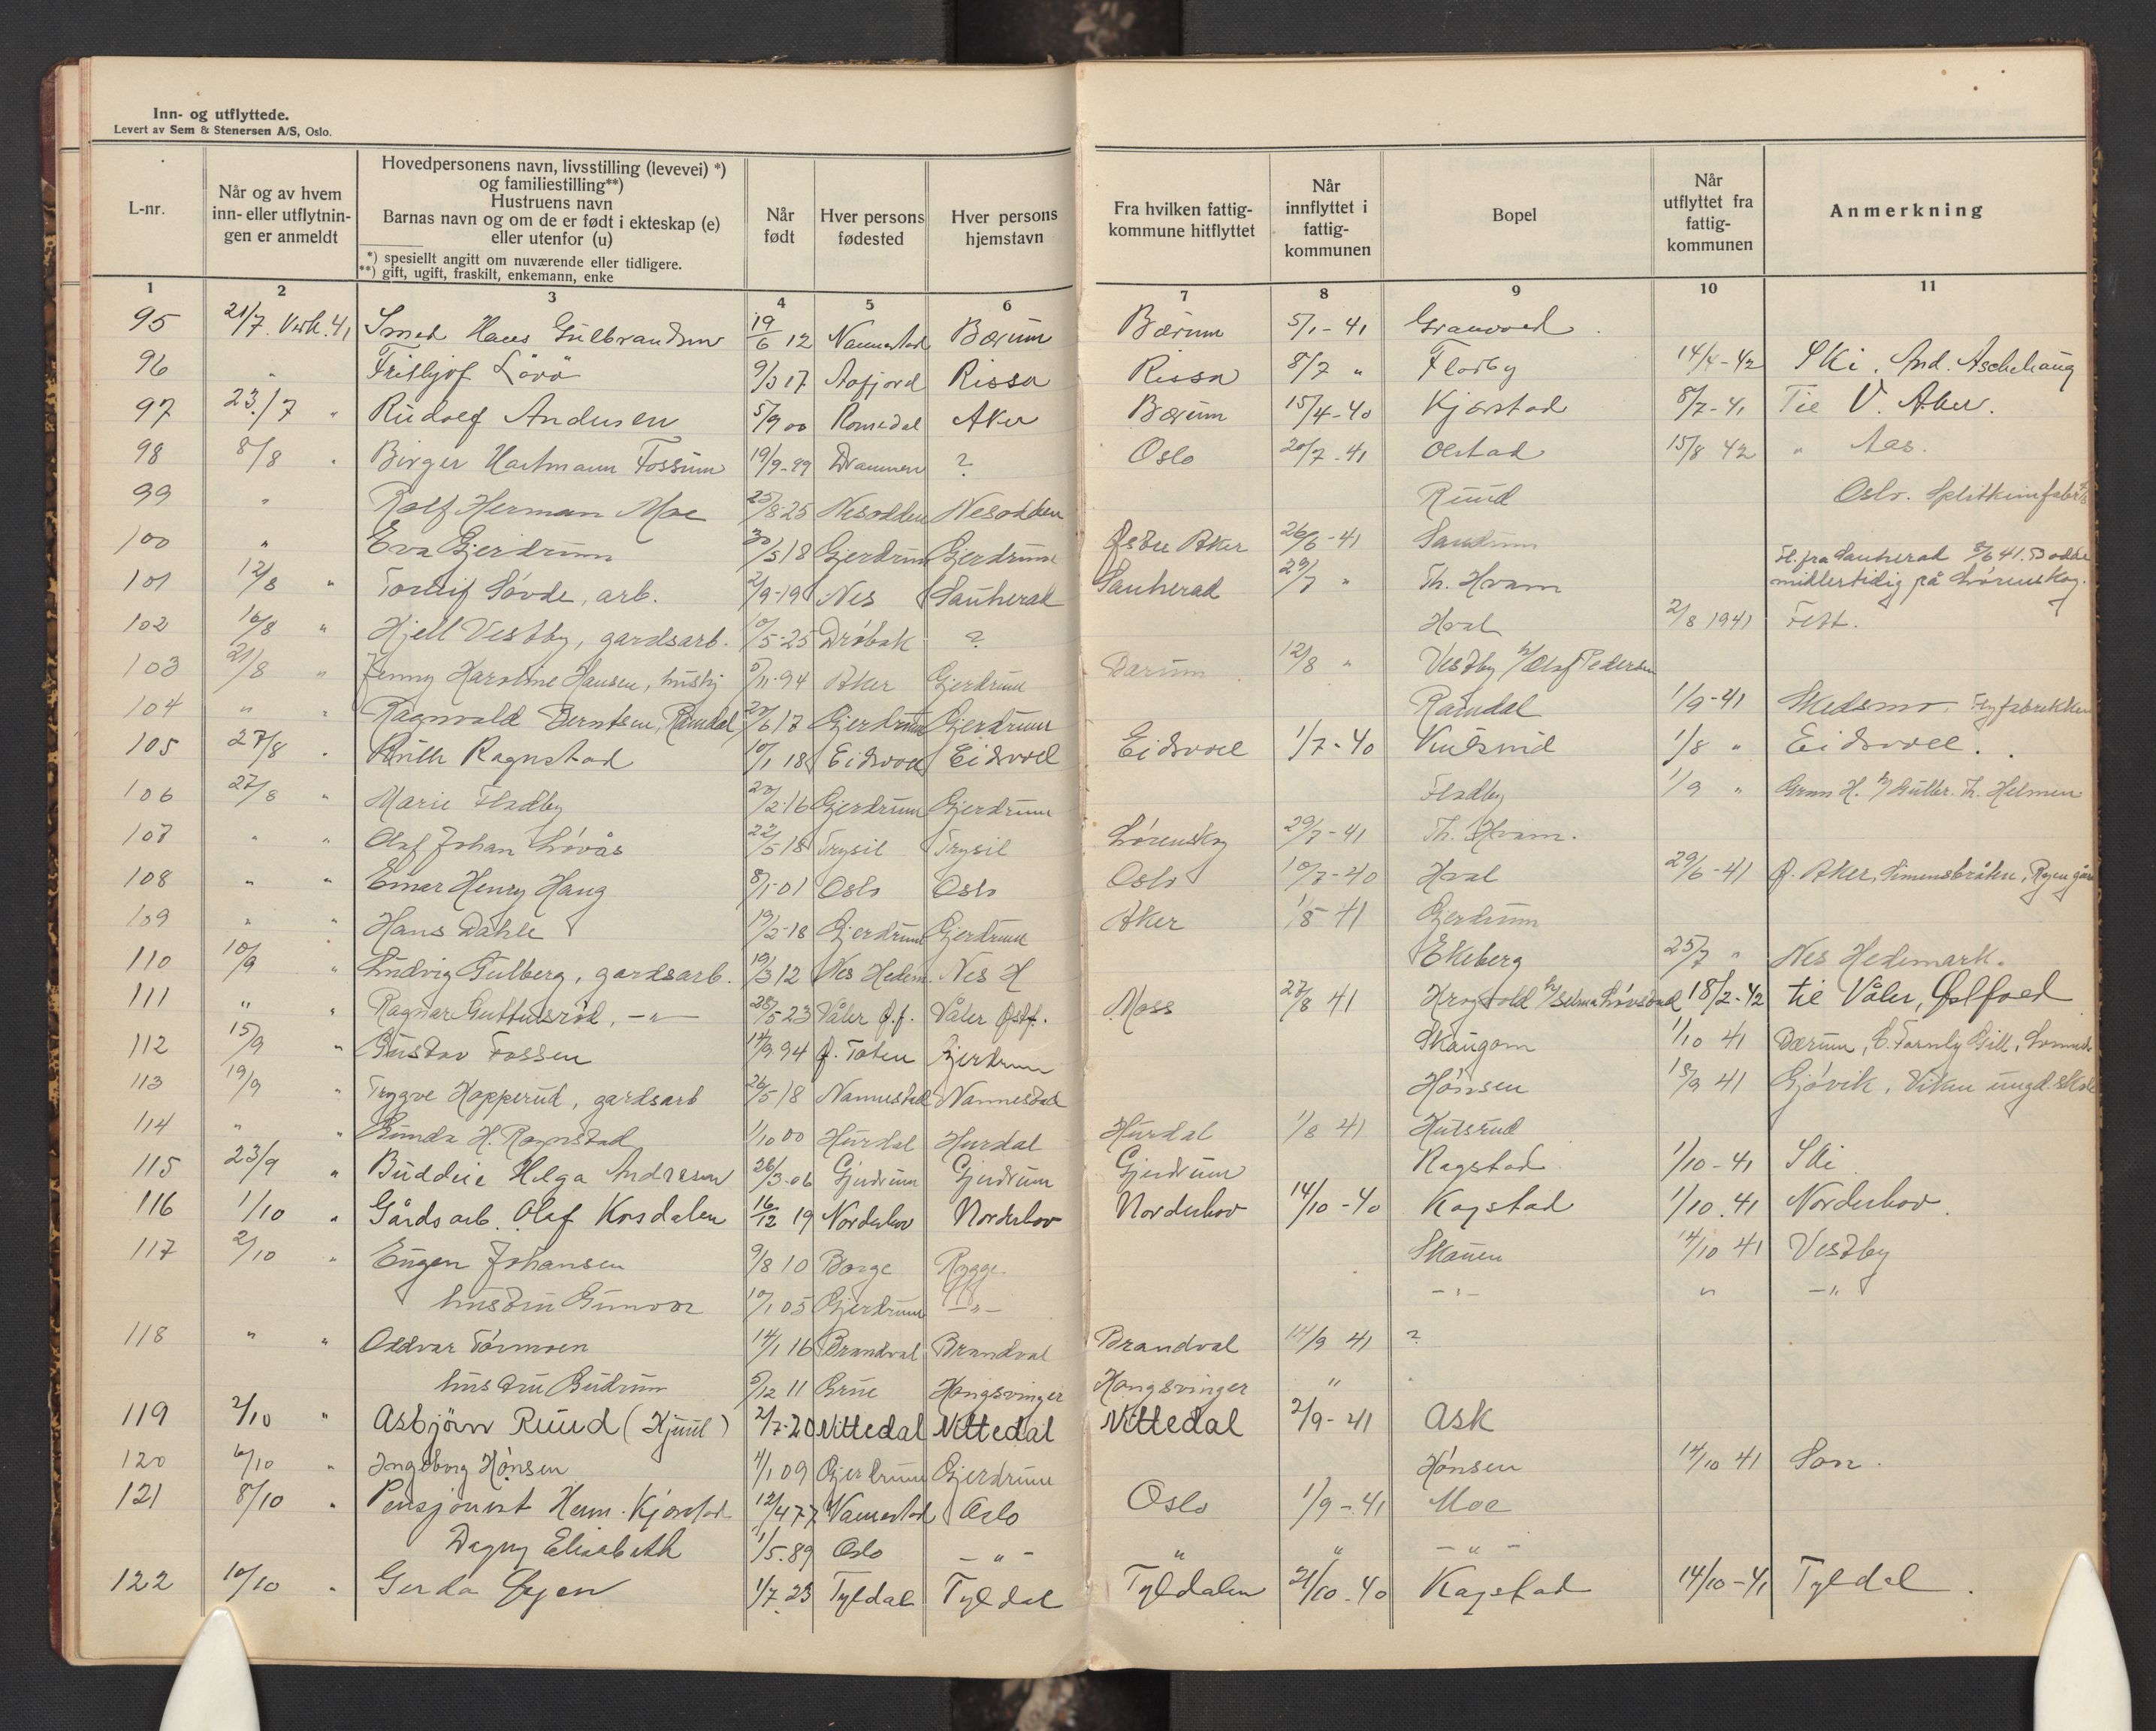 Inn- og utflyttede.
Levert av Sem & Stenersen A/S, Oslo.
L-nr.
Når og av hvem inn- eller utflytnin- gen er anmeldt
Hovedpersonens navn, livsstilling (levevei) *)
og familiestilling**)
Hustruens navn
Barnas navn og om de er født i ekteskap (e)
eller utenfor (u)
*) spesiellt angitt om nuværende eller tidligere.
**) gift, ugift, fraskilt, enkemann, enke
Når født
Hver persons fødested
Hver persons hjemstavn
Fra hvilken fattig- kommune hitflyttet
Når innflyttet i fattig- kommunen
Bopel
Når utflyttet fra fattig- kommunen
Anmerkning
1 2 3 4 5 6 7 8 9 10 11
95 21/7 41 Smed Hans Gulbrandsen 19/6 12 Nannestad Bærum Bærum 5/1-41
96 " Fritjof Lövö 9/3 17 Aafjord Rissa Rissa 8/7 " Fladby 14/4-42 Ski. And. Aschehaug
97 23/7 " Rudolf Andersen 5/9 00 Romedal Aker Bærum 15/4-40 Kjærstad 8/7-41 Til V. Aker.
98 8/8 " Birger Hartmann Fossum 19/9-99 Drammen ? Oslo 20/7-41 Olstad 15/8 42 " Aas.
99 " Rolf Herman Moe 25/8 25 Nesodden Nesodden Ruud Oslo.
100 " Eva Gjerdrum 30/5 18 Gjerdrum Gjerdrum Østre Aker 26/6-41
101 12/8 " Torleif Søvde, arb. 2/9-19 Nes Sauherad Sauherad 29/7 " Th. Hvam Fl. fra Sauherad 5/6 41. Bodde
midlertidig på Lørenskog.
102 16/8 " Kjell Vestby, gardsarb. 10/5-25 Drøbak ? Hval 2/8 1941 Fett.
103 21/8 " Jenny Karoline Hansen, hushj 5/11-94 Aker Gjerdrum Bærum 12/8 " Vestby h/ Olaf Pedersen
104 " " Ragnvald Berntsen, Ramdal 20/6 17 Gjerdrum Gjerdrum Ramdal 1/9-41 Skedsmo, Flyfabrikken
105 27/8 " Ruth Ragnstad 10/1 18 Eidsvoll Eidsvoll Eidsvoll 1/7-40 1/8 " Eidsvoll.
106 27/8 " Marie Fladby 20/2 16 Gjerdrum Gjerdrum Fladby 1/9 " Gran H. h/ Gulbr. Th. Helmen
107 " " Olaf Johan Løvås 22/5 18 Trysil Trysil Lørenskog 29/7-41 Th. Hvam.
108 " " Einar Henry Haug 8/1-01 Oslo Oslo Oslo 10/7-40 Hval 29/6-41 Ø. Aker, Simensbråten,
109 " " Hans Dahle 19/2-18 Gjerdrum Gjerdrum Aker 1/5 41 Gjerdrum
110 10/9 " Ludvig Gulberg, gardsarb. 19/3 12 Nes Hedem. Nes H Ekeberg 25/7 " Nes Hedemark.
111 " " Ragnar Guttulsrød, -"- 28/5 23 Våler Ø.f. Våler Østf. Moss 20/8 41 Krogvold h/ Selma 18/2-42 til Våler, Østfold
112 15/9 " Gustav Fossen 14/9 94 Ø. Toten Gjerdrum Skaugom 1/10 41 Bærum,
113 19/9 " Trygve Kopperud, gardsarb 26/5 18 Nannestad Nannestad Hønsen 15/9 41 Gjøvik, Viken ungd.skole
114 " " Gunda H. Ragnstad 1/10 00 Hurdal Hurdal Hurdal 1/8 41 Kulsrud
115 23/9 " Budeie Helga Andresen 26/3-06 Gjerdrum Gjerdrum Gjerdrum Ragstad 1/10-41 Ski
116 1/10 " Gårdsarb. Olaf Korsdalen 16/12 19 Norderhov Norderhov Norderhov 14/10-40 Kogstad 1/10.41 Norderhov.
117 2/10 " Eugen Johansen 9/8 10 Borge Rygge Skauen 14/10 41 Vestby
hustru Gunvor 10/1 05 Gjerdrum -"- -"- " -"-
118 " " Oddvar Tørmoen 14/1 16 Brandval Brandval Brandval 14/9 41 ?
hustru Gudrun 5/12 11 Grue Kongsvinger Kongsvinger "
119 2/10 " Asbjörn Ruud (Kjuul) 2/7-20 Nittedal Nittedal Nittedal 2/9-41 Ask
120 6/10 " Ingeborg Hønsen 4/1 09 Gjerdrum Gjerdrum Hønsen 14/10 41 Son.
121 8/10 " Pensjonist Herm. Kjærstad 12/4 77 Nannestad Oslo Oslo 1/9-41 Moe
Dagny Elisabeth 1/5.89 Oslo -"- " " -"-
122 10/10 " Gerda Øyen 1/7.23 Tyldal Tyldal Tyldalen 21/10-40 Kogstad 14/10-41 Tyldal.